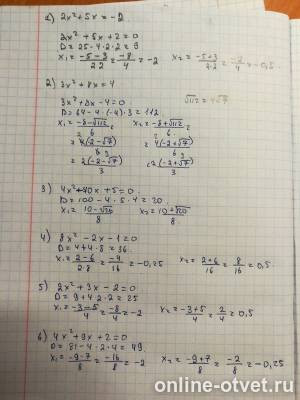 1) 2x² + 5x = -2
2x² + 5x + 2 = 0
D = 25 - 4·2·2 = 9
x₁ = (-5-3)/(2·2) = -8/4 = -2 x₂ = (-5+3)/(4·2) = -2/4 = -0,5
2) 3x² + 8x = 4
3x² + 8x - 4 = 0 √112 = 4√7
D = 64 - 4·(-4)·3 = 112
x₁ = (-8-√112)/6 x₂ = (-8+√112)/6
= 4(-2-√7)/6 = 4(-2+√7)/6
= 2(-2-√7)/3 = 2(-2+√7)/3
3) 4x² - 10x + 5 = 0
D = 100 - 4·5·4 = 20
x₁ = (10-√20)/8 x₂ = (10+√20)/8
4) 8x² - 2x - 1 = 0
D = 4 + 4·8 = 36
x₁ = (2-6)/(2·8) = -4/16 = -0,25 x₂ = (2+6)/16 = 8/16 = 0,5
5) 2x² + 3x - 2 = 0
D = 9 + 4·2·2 = 25
x₁ = (-3-5)/4 = -8/4 = -2 x₂ = (-3+5)/4 = 2/4 = 0,5
6) 4x² + 9x + 2 = 0
D = 81 - 4·2·4 = 49
x₁ = (-9-7)/8 = -16/8 = -2 x₂ = (-9+7)/8 = -2/8 = -0,25
online-otvet.ru